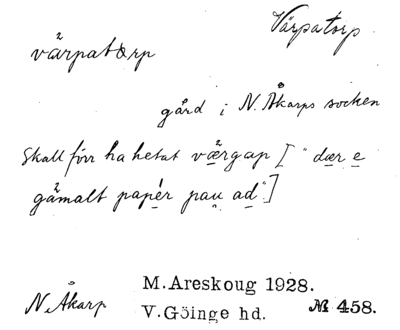 Värpatorp
värpatorp
gård i N. Åkarps socken
Skall förr ha hetat værgap [ "dær e
gåmalt papér pau ad".]
M. Areskoug 1928.
N. Åkarp
V. Göinge hd. № 458.